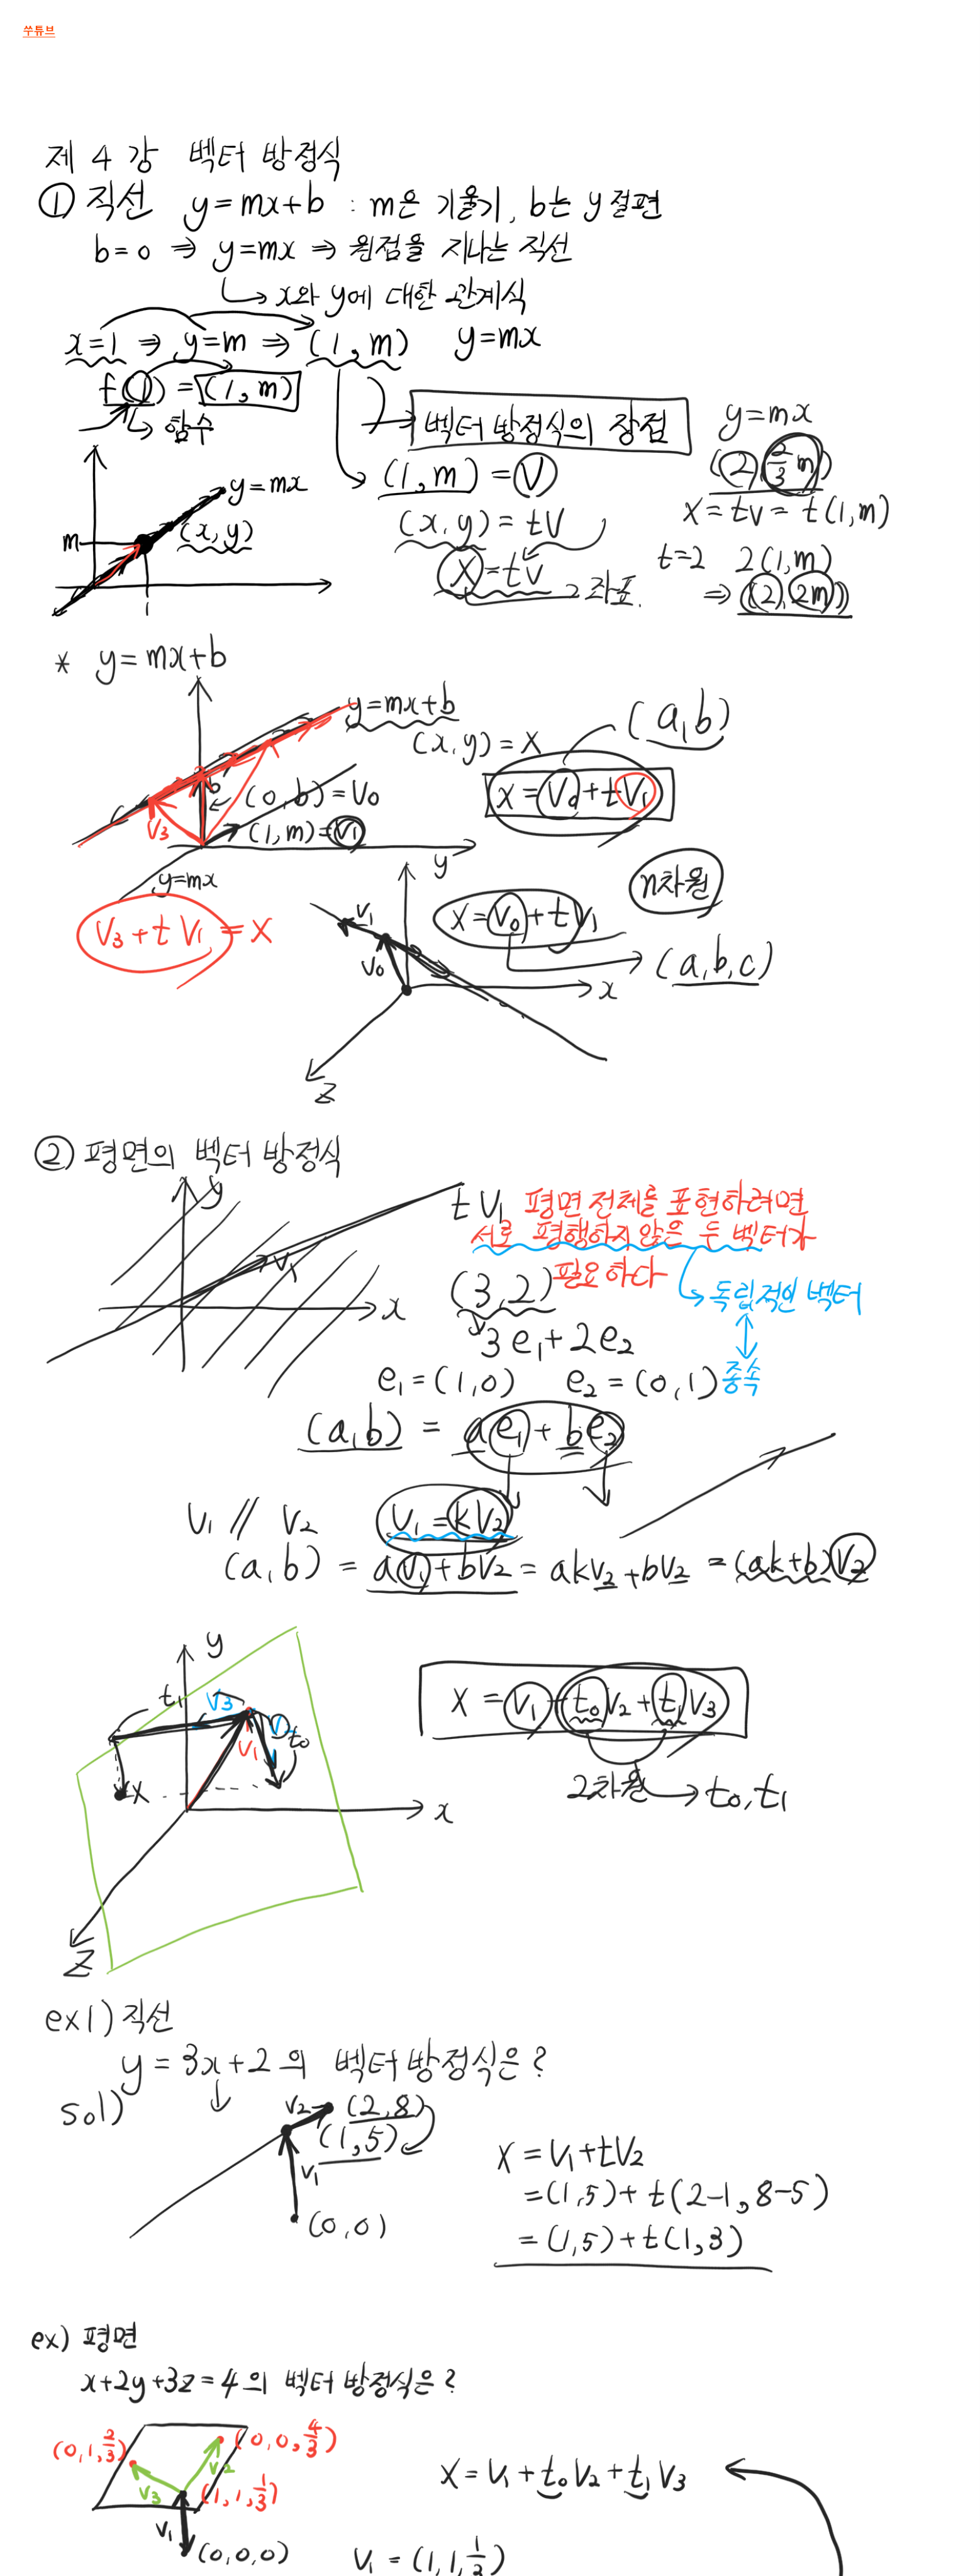 쑤튜브
제 4 강 벡터 방정식
① 직선 y=mx+b : m은 기울기, b는 y절편
b=0 ⇒ y=mx ⇒ 원점을 지나는 직선
↳ x와 y에 대한 관계식
x=1 ⇒ y=m ⇒ (1,m) y=mx
f(1) = (1,m)
↳ 함수
벡터 방정식의 장점
y=mx
(2, 2/3 m)
(1,m) = V
X=tV= t(1,m)
y=mx
m
(x,y)
1
(x,y) = tV
X=tV
좌표.
t=2 2(1,m)
⇒ (2, 2m)
* y=mx+b
y=mx+b
(x,y) = X
(a,b)
X=V₀+tV₁
b
(0,b)=V₀
V₃
(1,m)=V₁
y=mx
V₃+tV₁=X
y
V₁
V₀
x
z
X=V₀+tV₁
n차원
(a,b,c)
② 평면의 벡터 방정식
y
tV₁
V₁
x
평면 전체를 표현하려면
서로 평행하지 않은 두 벡터가
필요하다
↳ 독립적인 벡터
↕
종속
(3,2)
3e₁+2e₂
e₁=(1,0) e₂=(0,1)
(a,b) = ae₁+be₂
V₁ // V₂ V₁=kV₂
(a,b) = aV₁+bV₂ = akV₂+bV₂ = (ak+b)V₂
y
t₁
V₃
V₂
t₀
V₁
X
x
z
X = V₁+t₀V₂+t₁V₃
2차원 → t₀,t₁
ex1) 직선
y=3x+2의 벡터 방정식은?
sol)
V₂
(2,8)
(1,5)
V₁
(0,0)
X=V₁+tV₂
=(1,5)+t(2-1, 8-5)
=(1,5)+t(1,3)
ex) 평면
x+2y+3z=4의 벡터 방정식은?
(0,1,2/3)
(0,0,4/3)
V₂
V₃
(1,1,1/3)
V₁
(0,0,0)
X=V₁+t₀V₂+t₁V₃
V₁ = (1,1,1/3)